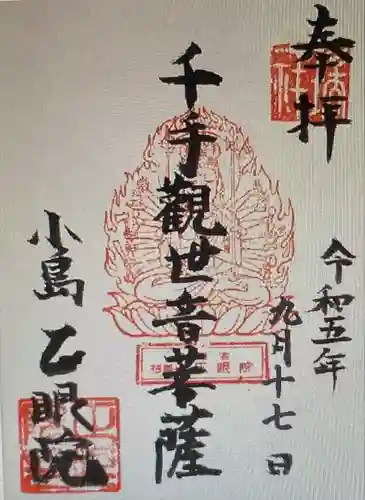 奉拝
令和五年
九月十七日
千手千手觀世音菩薩
小島乙眼院